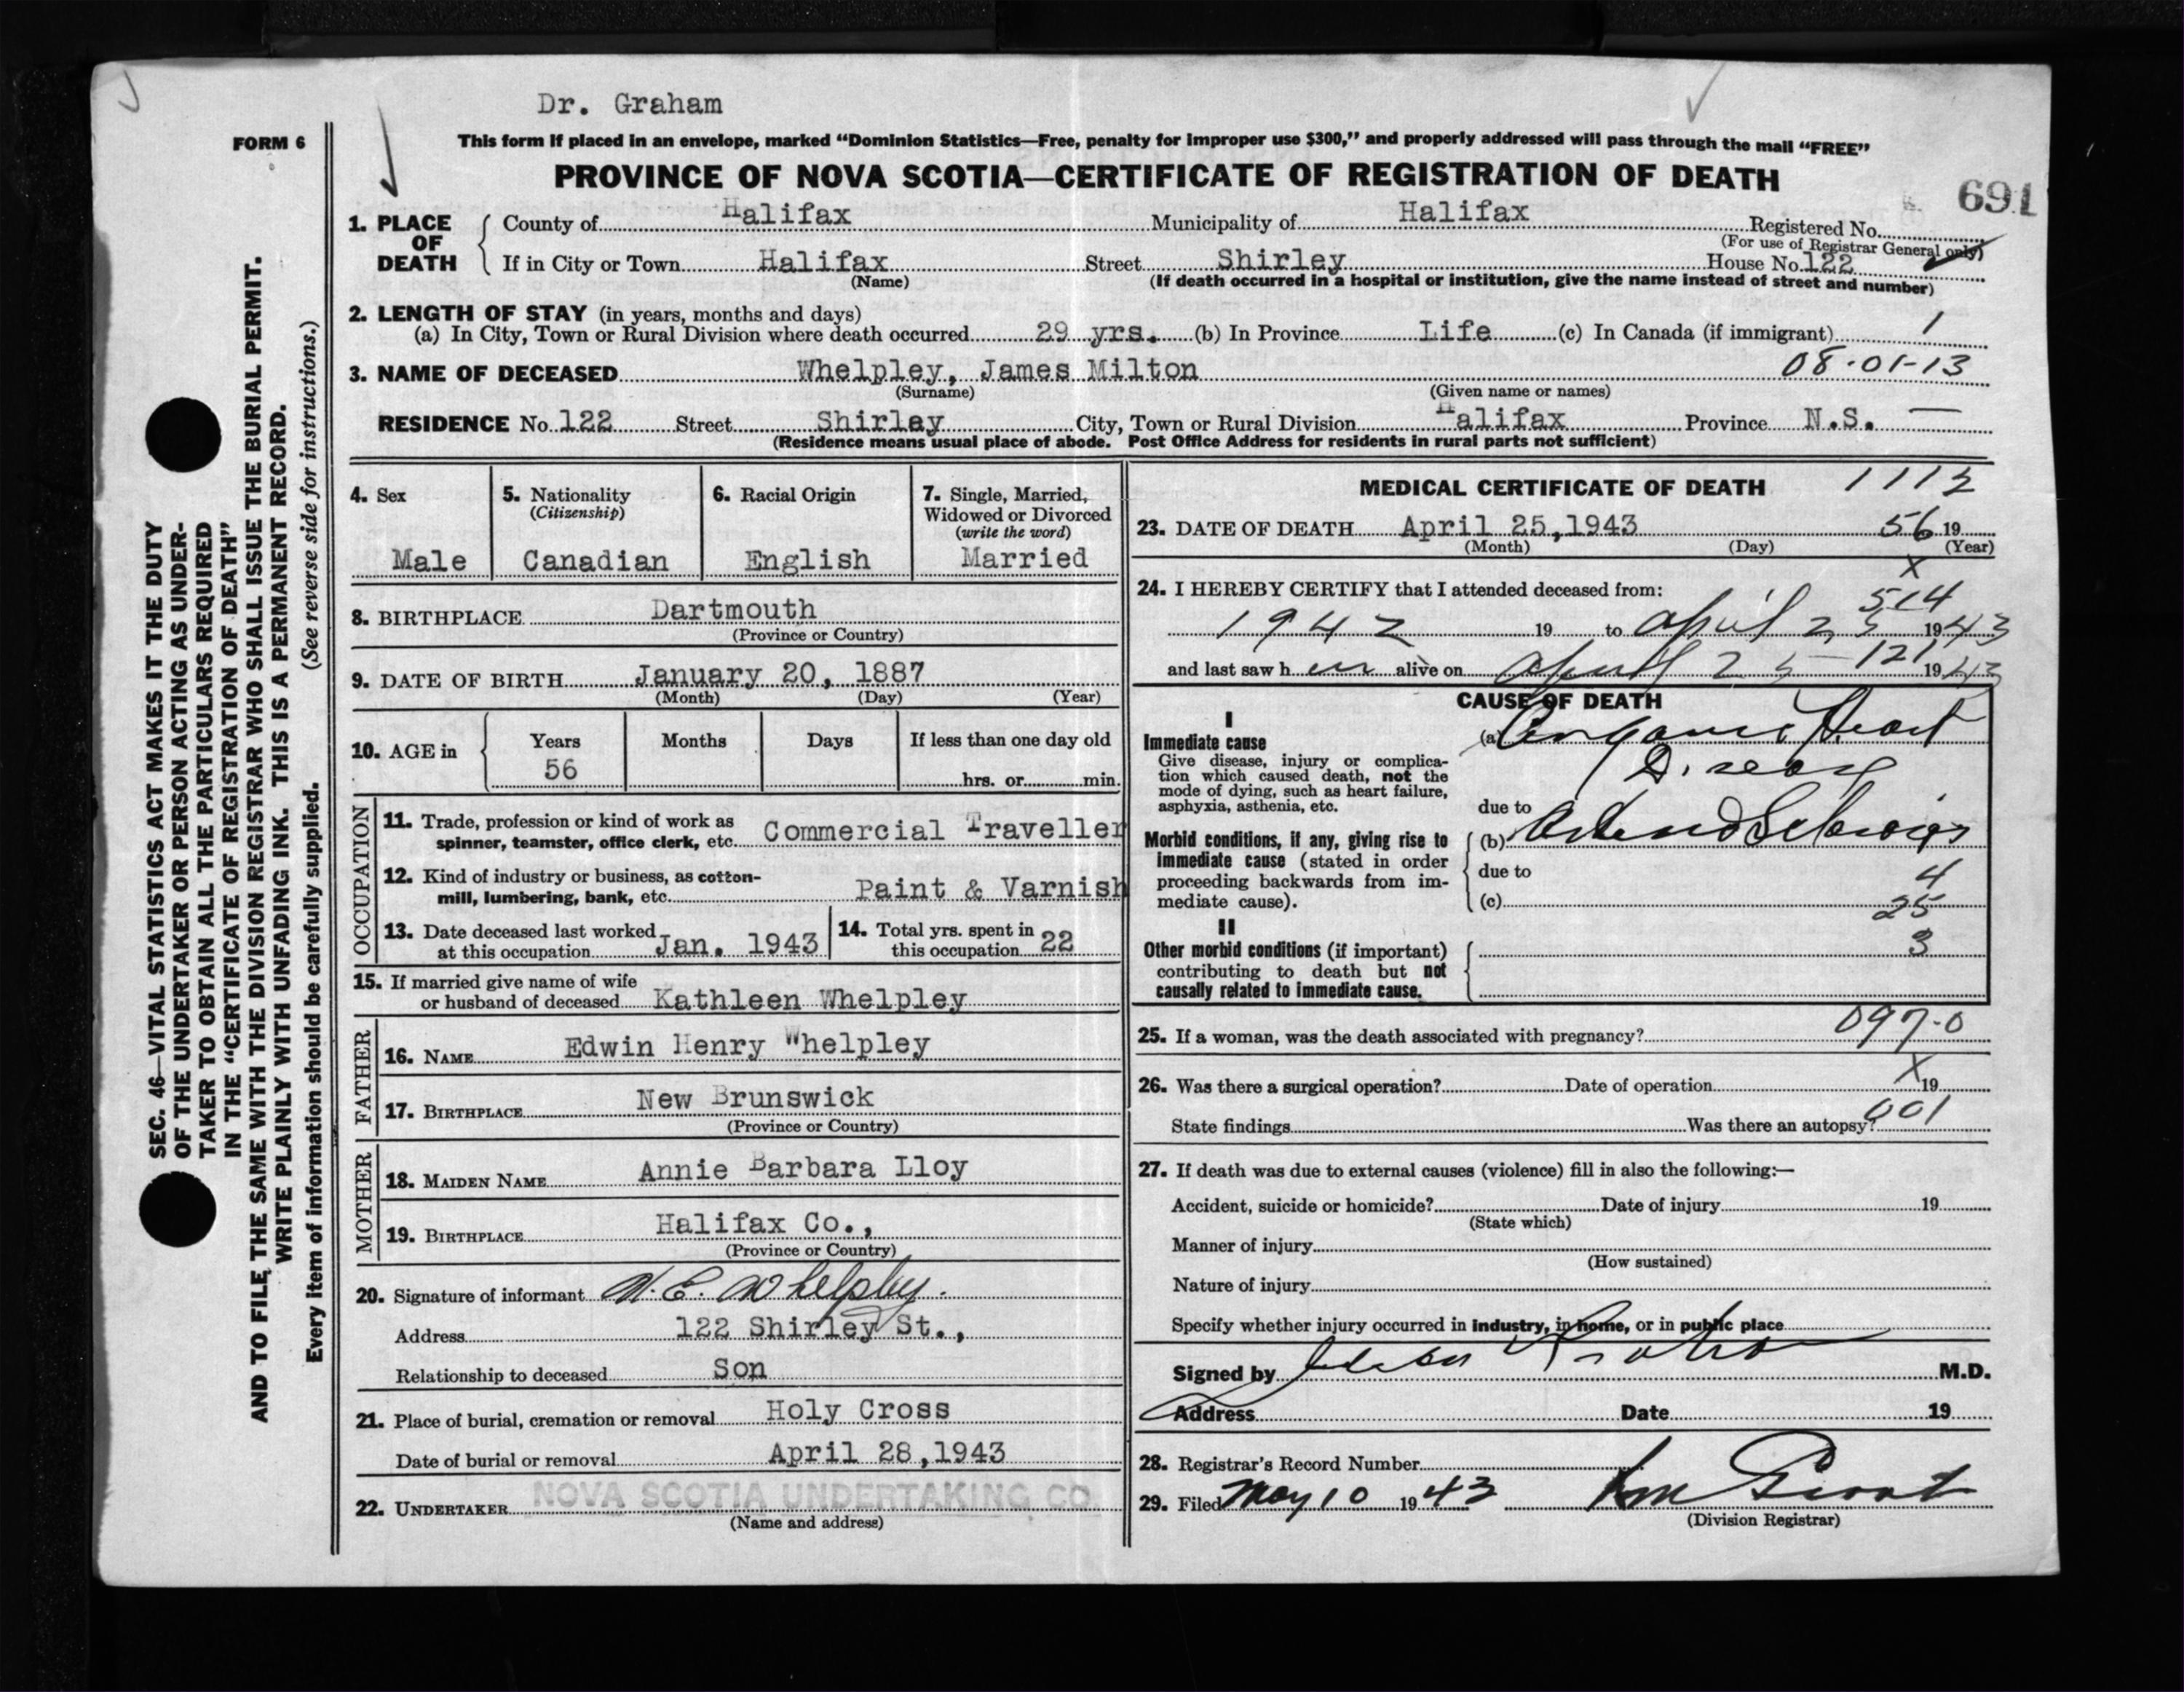 Dr. Graham
FORM 6
This form if placed in an envelope, marked “Dominion Statistics—Free, penalty for improper use $300,” and properly addressed will pass through the mail “FREE”
PROVINCE OF NOVA SCOTIA—CERTIFICATE OF REGISTRATION OF DEATH
691
1. PLACE OF DEATH
County of Halifax Municipality of Halifax Registered No.
(For use of Registrar General only)
If in City or Town Halifax Street Shirley House No. 122
(Name) (If death occurred in a hospital or institution, give the name instead of street and number)
2. LENGTH OF STAY (in years, months and days)
(a) In City, Town or Rural Division where death occurred 29 yrs. (b) In Province Life (c) In Canada (if immigrant) 1
08-01-13
3. NAME OF DECEASED Whelpley, James Milton
(Surname) (Given name or names)
RESIDENCE No. 122 Street Shirley City, Town or Rural Division Halifax Province N.S. —
(Residence means usual place of abode. Post Office Address for residents in rural parts not sufficient)
4. Sex
Male
5. Nationality
(Citizenship)
Canadian
6. Racial Origin
English
7. Single, Married,
Widowed or Divorced
(write the word)
Married
8. BIRTHPLACE Dartmouth
(Province or Country)
9. DATE OF BIRTH January 20, 1887
(Month) (Day) (Year)
10. AGE in
Years Months Days If less than one day old
56
hrs. or min.
OCCUPATION
11. Trade, profession or kind of work as
spinner, teamster, office clerk, etc. Commercial Traveller
12. Kind of industry or business, as cotton-
mill, lumbering, bank, etc. Paint & Varnish
13. Date deceased last worked
at this occupation Jan. 1943
14. Total yrs. spent in
this occupation 22
15. If married give name of wife
or husband of deceased Kathleen Whelpley
FATHER
16. NAME Edwin Henry Whelpley
17. BIRTHPLACE New Brunswick
(Province or Country)
MOTHER
18. MAIDEN NAME Annie Barbara Lloy
19. BIRTHPLACE Halifax Co.,
(Province or Country)
20. Signature of informant W. E. Whelpley.
Address 122 Shirley St.,
Relationship to deceased Son
21. Place of burial, cremation or removal Holy Cross
Date of burial or removal April 28,1943
22. UNDERTAKER NOVA SCOTIA UNDERTAKING CO.
(Name and address)
MEDICAL CERTIFICATE OF DEATH
23. DATE OF DEATH April 25,1943 56 19
(Month) (Day) (Year)
x
24. I HEREBY CERTIFY that I attended deceased from:
514
1942 19 to April 25 1943
121
and last saw h im alive on April 25 1943
CAUSE OF DEATH
I
Immediate cause
Give disease, injury or complica-
tion which caused death, not the
mode of dying, such as heart failure,
asphyxia, asthenia, etc.
(a) Organic Heart
Disease
due to
Morbid conditions, if any, giving rise to
immediate cause (stated in order
proceeding backwards from im-
mediate cause).
(b) Arterio Sclerosis
due to
4
(c)
25
II
Other morbid conditions (if important)
contributing to death but not
causally related to immediate cause.
3
25. If a woman, was the death associated with pregnancy? 097-0
x
26. Was there a surgical operation? Date of operation 19
State findings Was there an autopsy? 001
27. If death was due to external causes (violence) fill in also the following:—
Accident, suicide or homicide? Date of injury 19
(State which)
Manner of injury
(How sustained)
Nature of injury
Specify whether injury occurred in industry, in home, or in public place
Signed by M.D.
Address Date 19
28. Registrar's Record Number
29. Filed May 10 1943
(Division Registrar)
SEC. 46—VITAL STATISTICS ACT MAKES IT THE DUTY
OF THE UNDERTAKER OR PERSON ACTING AS UNDER-
TAKER TO OBTAIN ALL THE PARTICULARS REQUIRED
IN THE “CERTIFICATE OF REGISTRATION OF DEATH”
AND TO FILE THE SAME WITH THE DIVISION REGISTRAR WHO SHALL ISSUE THE BURIAL PERMIT.
WRITE PLAINLY WITH UNFADING INK. THIS IS A PERMANENT RECORD.
Every item of information should be carefully supplied. (See reverse side for instructions.)